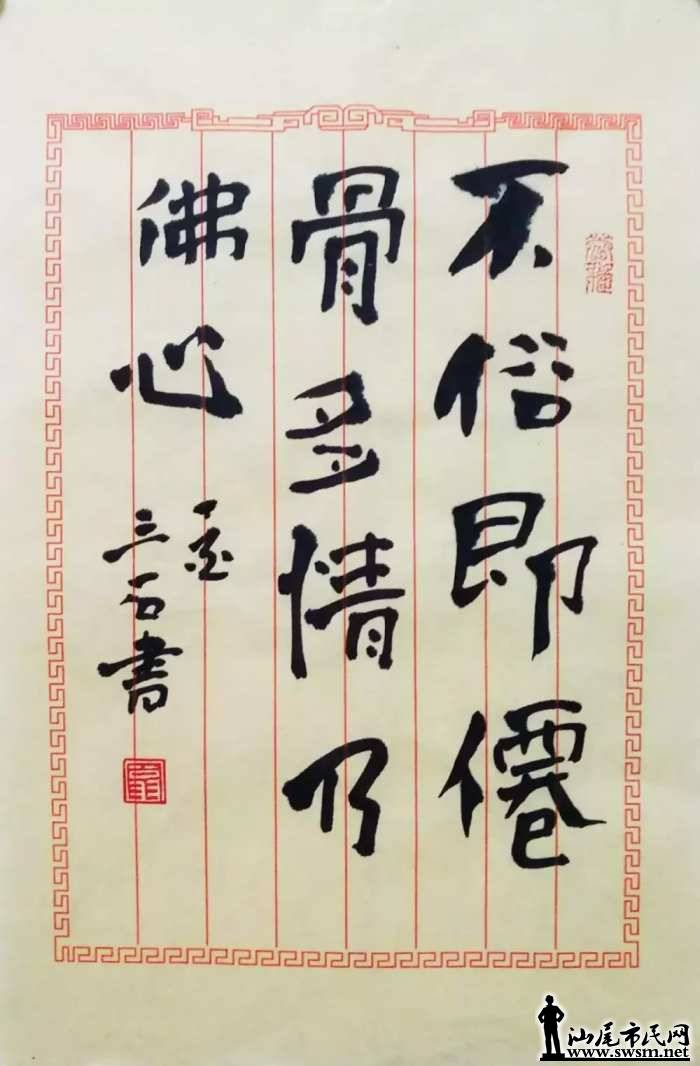 不俗即僊
骨多情乃
佛心
三石書
汕尾市民网
www.swsm.net